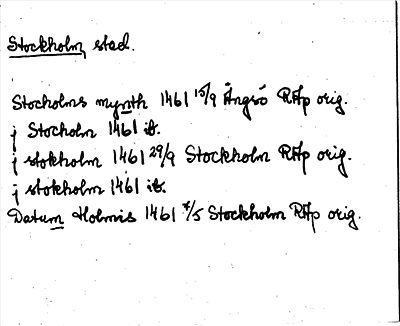 Stockholm, stad.
Stocholms mynth 1461 15/9 Ängsö RAp orig.
j Stocholm 1461 ib.
j stokholm 1461 29/9 Stockholm RAp orig.
j stokholm 1461 ib.
Datum Holmis 1461 4/5 Stockholm RAp orig.